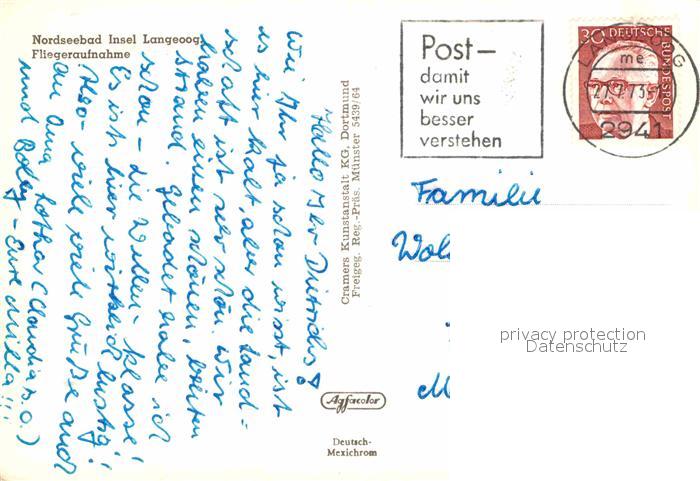 Nordseebad Insel Langeoog
Fliegeraufnahme
Hallo Ihr Dietrichs!
Wie Ihr ja schon wisst, ist
es hier kalt, aber die Land-
schaft ist sehr schön. Wir
haben einen schönen, breiten
Strand. Gebadet habe ich
schon – die Wellen – klasse!
Es ist hier wirklich lustig!
Also – viele viele Grüße auch
an Oma Lothar (Claudia u. a.)
und – Eure !!!
Cramers Kunstanstalt KG, Dortmund
Freigeg. Reg.-Präs. Münster 5439/64
Agfacolor
Deutsch-
Mexichrom
Post–
damit
wir uns
besser
verstehen
30 DEUTSCHE BUNDESPOST
LANGEOOG
me
27.7.73
2941
Familie
Wol
M
privacy protection
Datenschutz